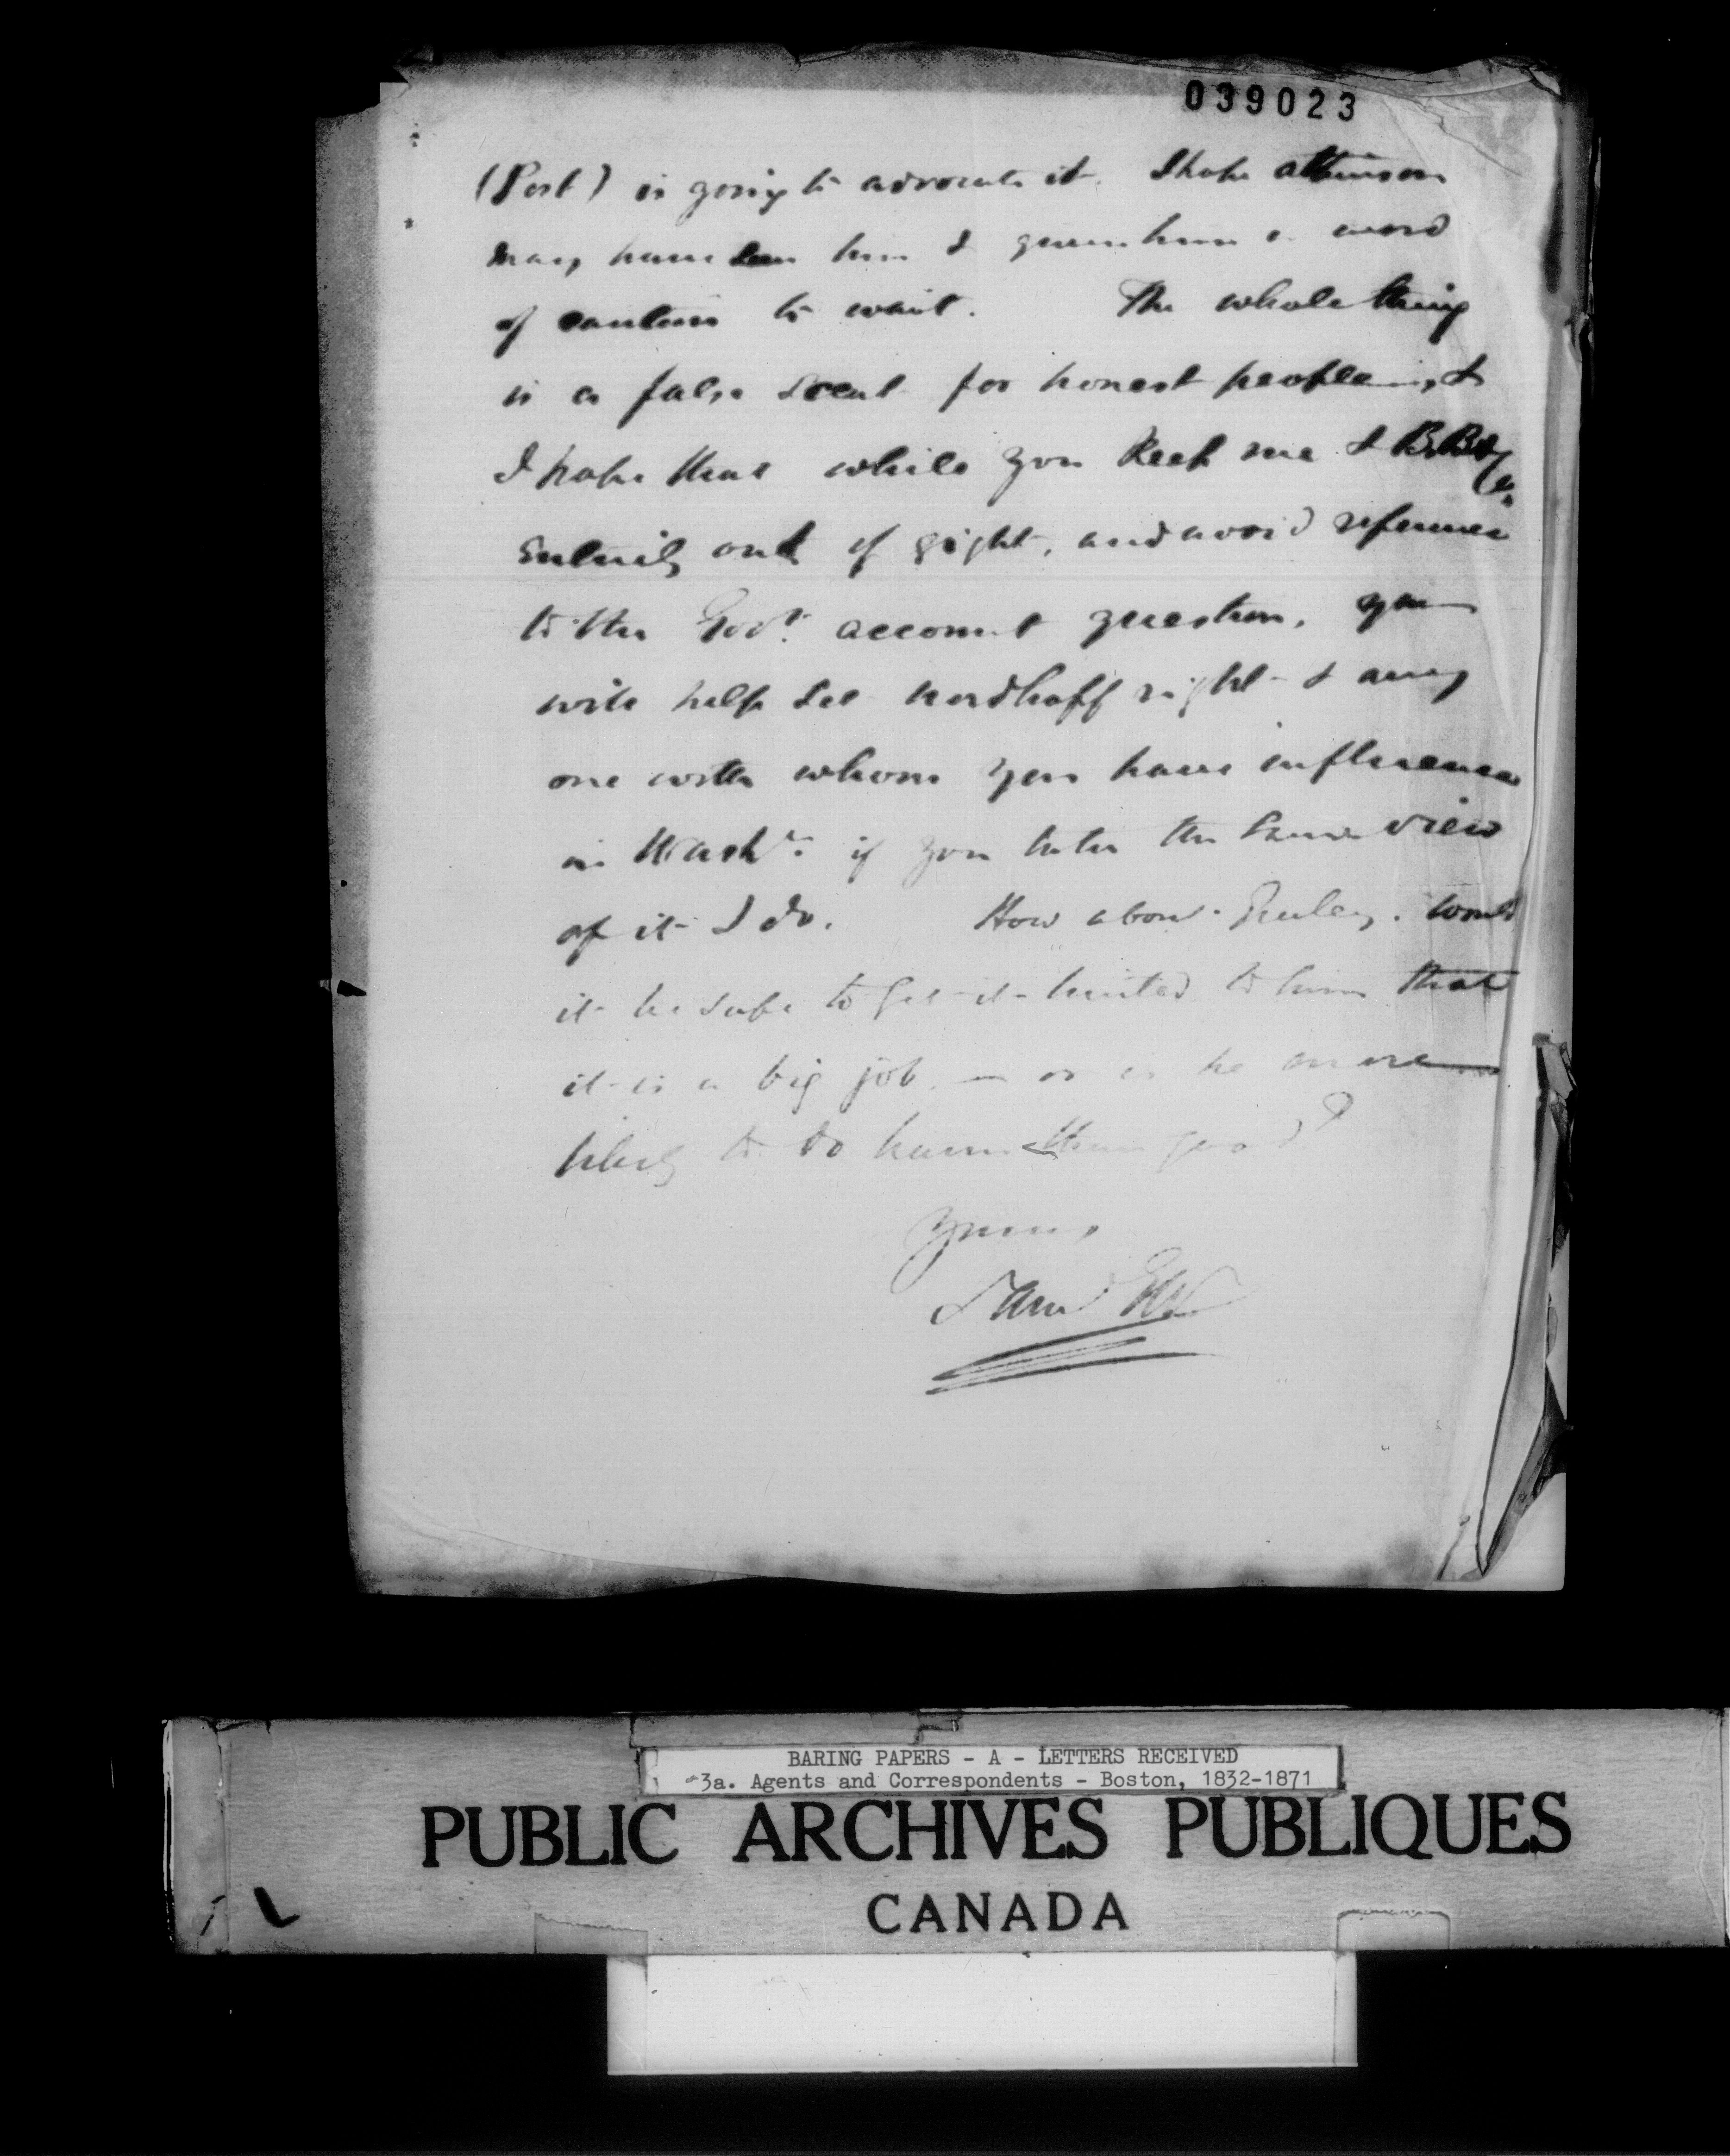 039023
(Post) is going to advocate it. I hope Atkinson
may have seen him & given him a word
of caution to wait. The whole thing
is a false scent for honest people, &
I hope that while you keep me & B.B & Co
entirely out of sight, and avoid reference
to the Govt. account question, you
will help set Nordhoff right & any
one with whom you have influence
in Washn. if you take the same view
of it I do. How about. Would
it be safe to get it hinted to him that
it is a big job — or is he more
likely to do harm than good?
Yours
Saml GW
BARING PAPERS - A - LETTERS RECEIVED
3a. Agents and Correspondents - Boston, 1832-1871
PUBLIC ARCHIVES PUBLIQUES
CANADA